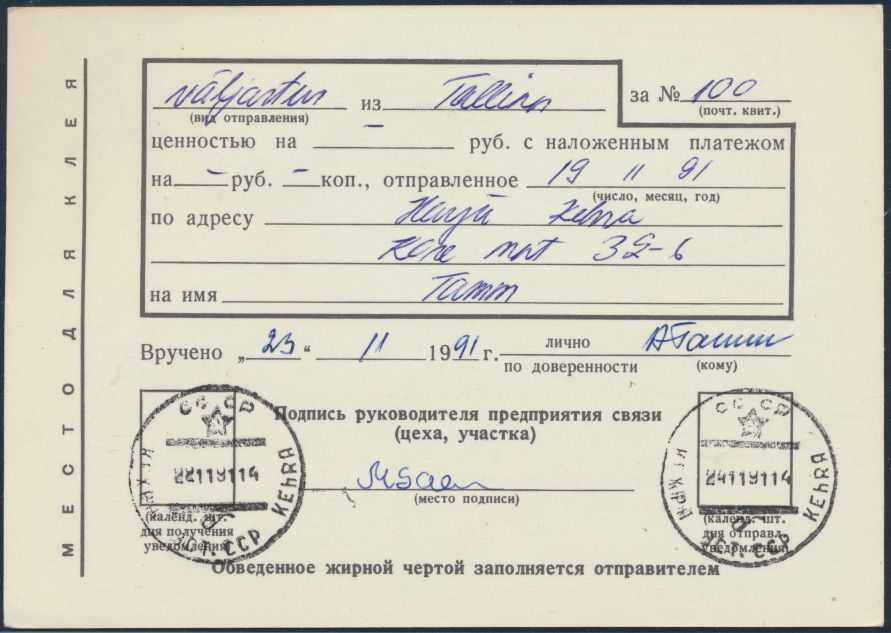 МЕСТО ДЛЯ КЛЕЯ
väljastus из Tallinn за № 100
(вид отправления) (почт. квит.)
ценностью на – руб. с наложенным платежом
на – руб. – коп., отправленное 19 11 91
(число, месяц, год)
по адресу Harju Kehra
mnt 32-6
на имя Tamm
Вручено „23“ 11 1991 г. лично ATamm
по доверенности (кому)
Подпись руководителя предприятия связи
(цеха, участка)
(место подписи)
(календ. шт.
дня получения
уведомления)
(календ. шт.
дня отправл.
уведомления)
СССР
2211 9114
КЕХРА KEHRA
ЭСТ. ССР
СССР
2411 9114
КЕХРА KEHRA
ЭСТ. ССР
Обведенное жирной чертой заполняется отправителем